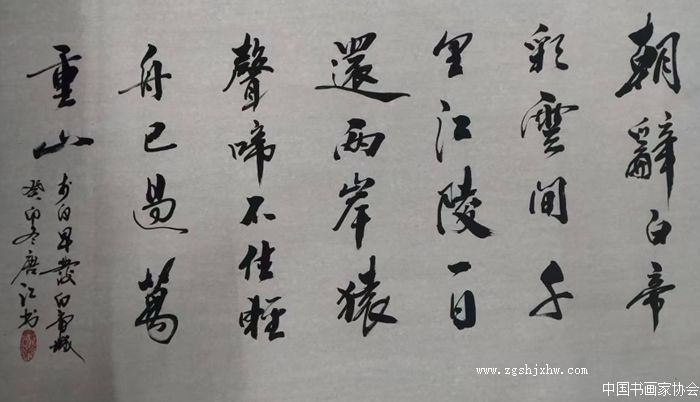 朝辭白帝
彩雲间千
里江陵一日
還兩岸猿
聲啼不住輕
舟已過萬
重山
李白早發白帝城
癸卯冬唐江书
www.zgshjxhw.com
中国书画家协会